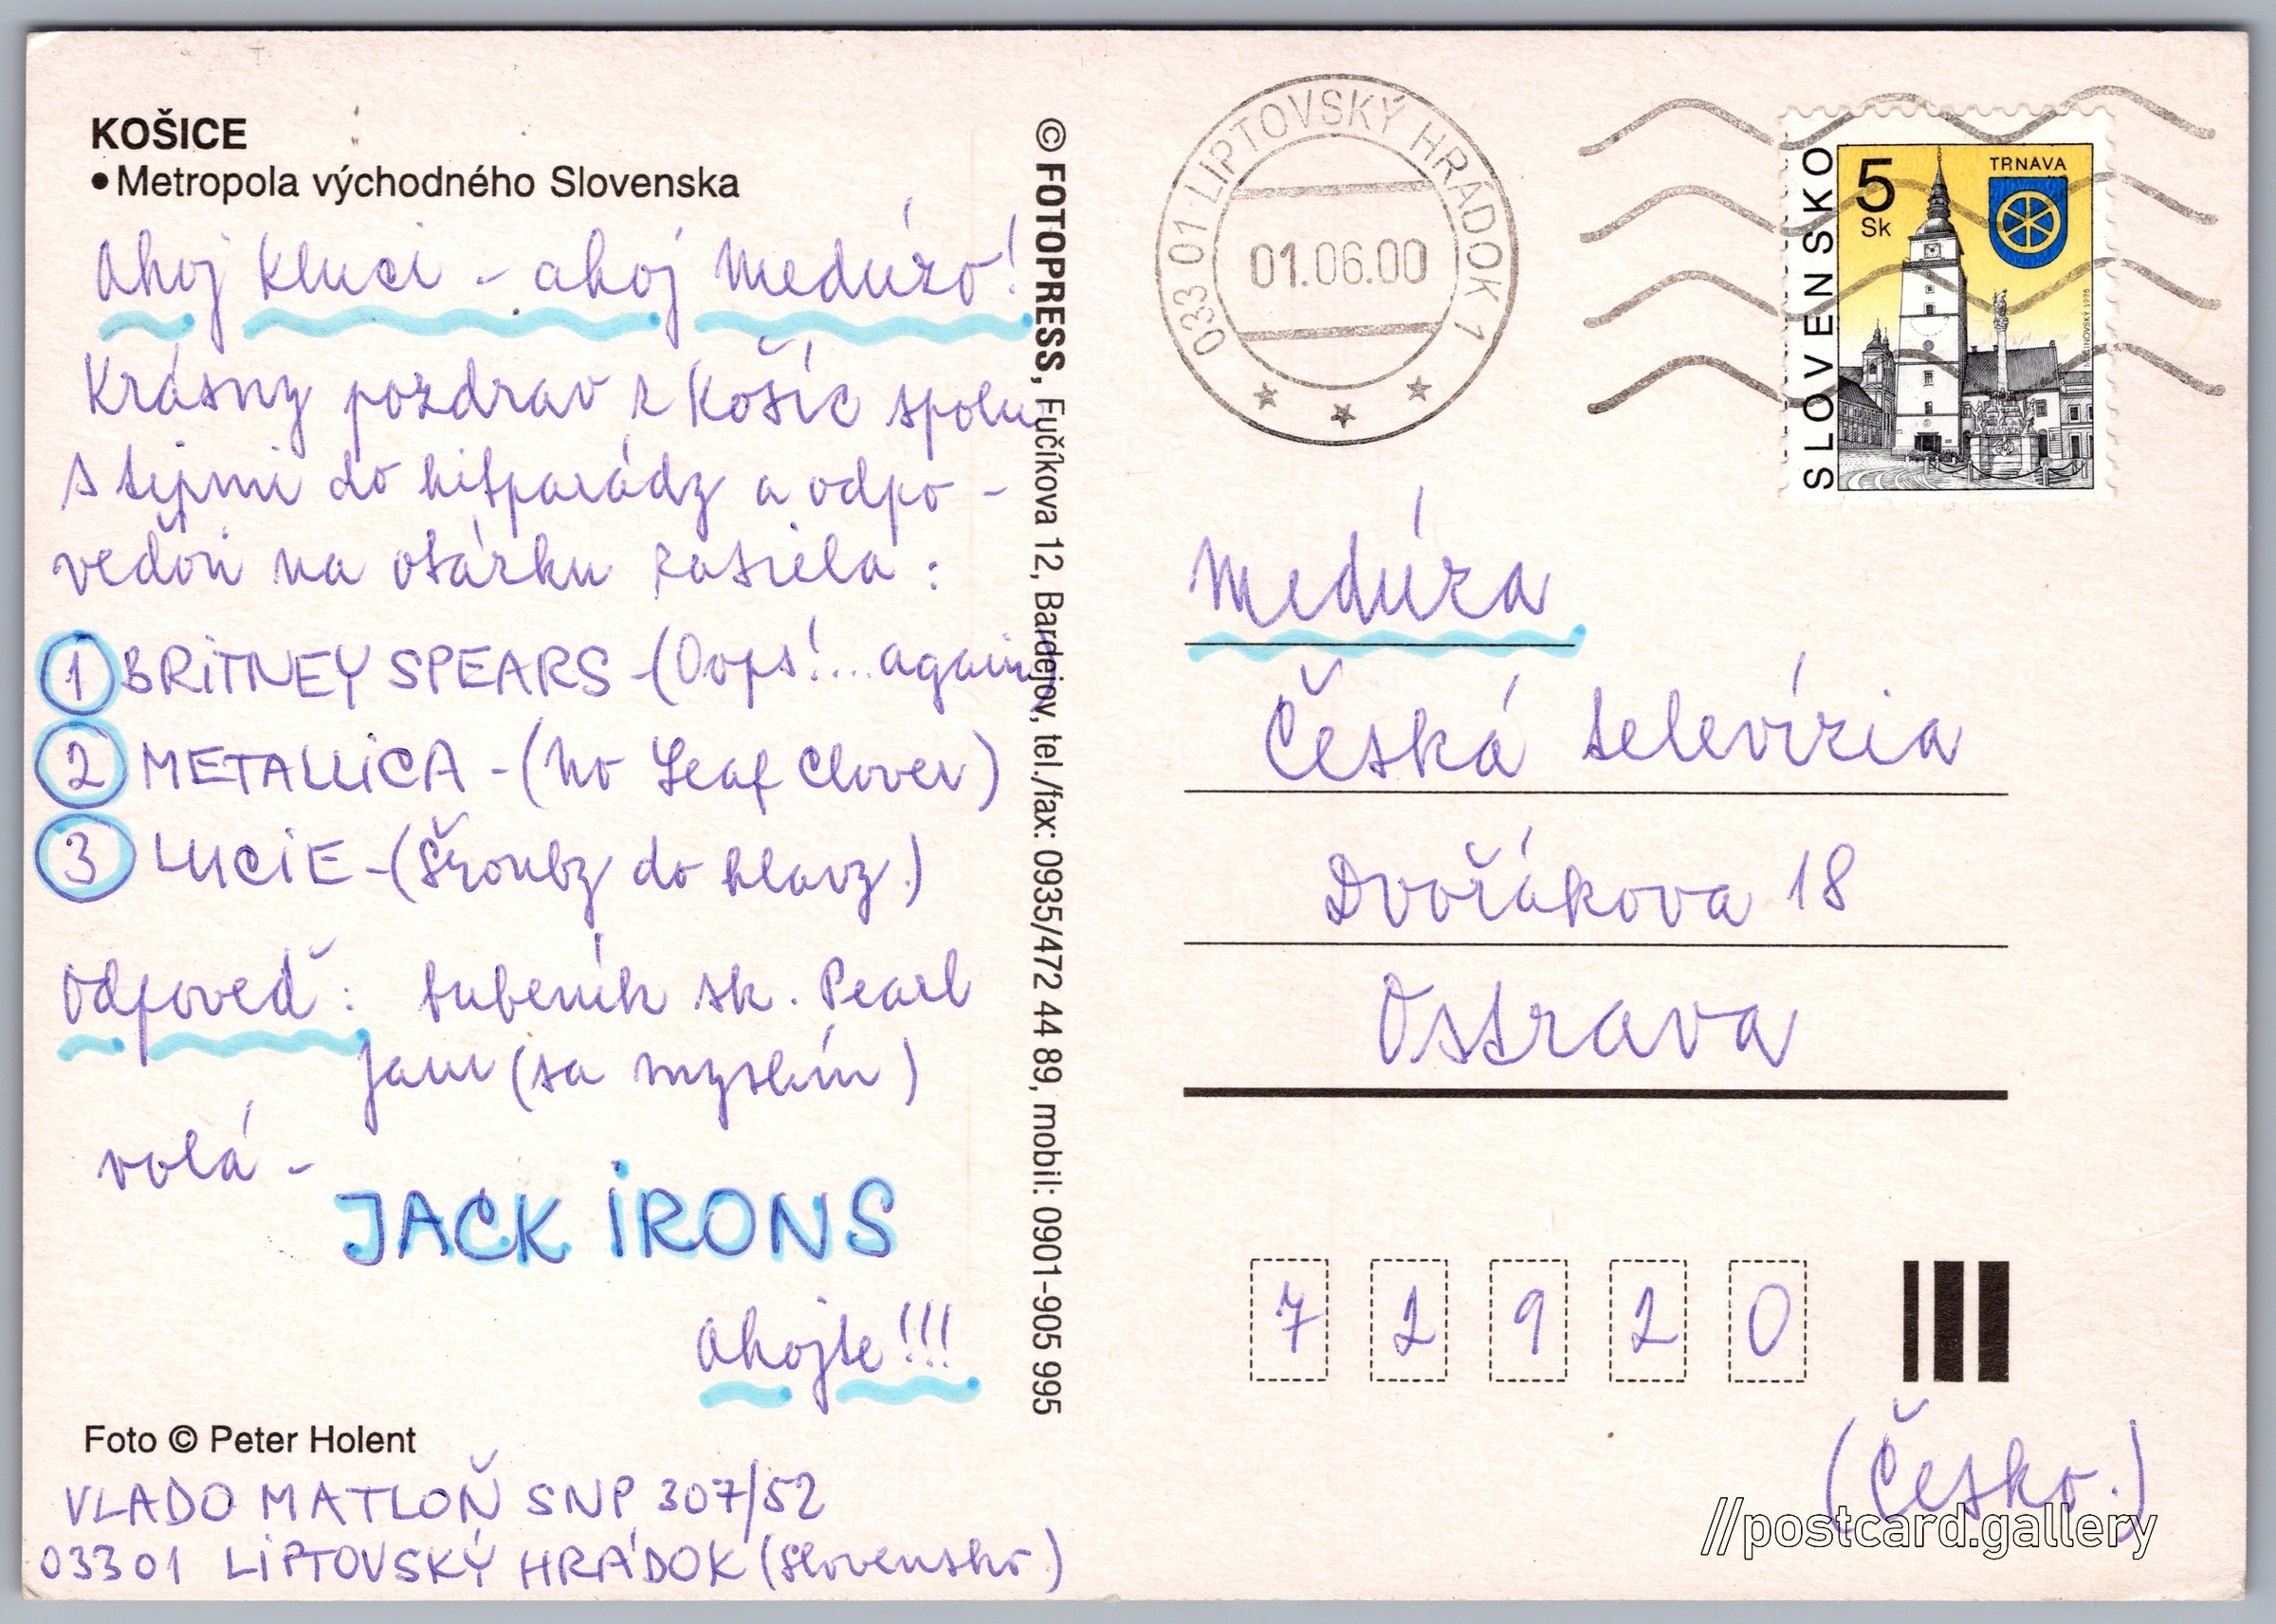 KOŠICE
• Metropola východného Slovenska
Ahoj kluci - ahoj Medúzo!
Krásny pozdrav z Košíc spolu
s tipmi do hitparády a odpo-
veďou na otázku zasiela:
1 BRITNEY SPEARS - (Oops!... again)
2 METALLICA - (No Leaf Clover)
3 LUCIE - (Šrouby do hlavy)
Odpoveď: bubeník sk. Pearl
Jam (sa myslím)
volá -
JACK IRONS
Ahojte!!!
Foto © Peter Holent
VLADO MATLOŇ SNP 307/52
03301 LIPTOVSKÝ HRÁDOK (Slovensko)
© FOTOPRESS, Fučíkova 12, Bardejov, tel./fax: 0935/472 44 89, mobil: 0901-905 995
033 01 LIPTOVSKÝ HRÁDOK 1
01.06.00
SLOVENSKO
5
Sk
TRNAVA
Medúza
Česká televízia
Dvořákova 18
Ostrava
7 2 9 2 0
(Česko)
//postcard.gallery